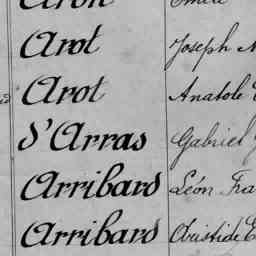 Arot Joseph
Arot Anatole
d'Arras Gabriel
Arribard Léon
Arribard Aristide